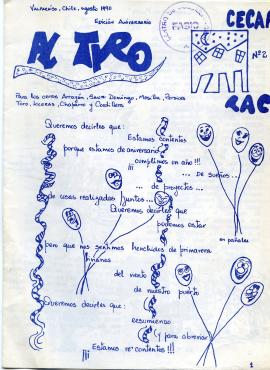 Valparaíso, Chile, agosto 1990
Edición Aniversario
CECAP
AL TIRO
Nº 2
RAC
Para los cerros Arrayán, Santo Domingo, Mesilla, Perdices
Toro, Loceras, Chaparro y Cordillera
Queremos decirles que:
Estamos contentos
porque estamos de aniversario
cumplimos un año!!!
¡¡¡
... De sueños...
... de proyectos...
de cosas realizadas juntos...
Queremos decirles que
podremos estar
en pañales
pero que nos sentimos henchidos de primavera
livianos
del viento
de nuestro puerto
Queremos decirles que:
resumiendo
(y para abreviar)
¡¡¡ Estamos re' contentos!!!
1